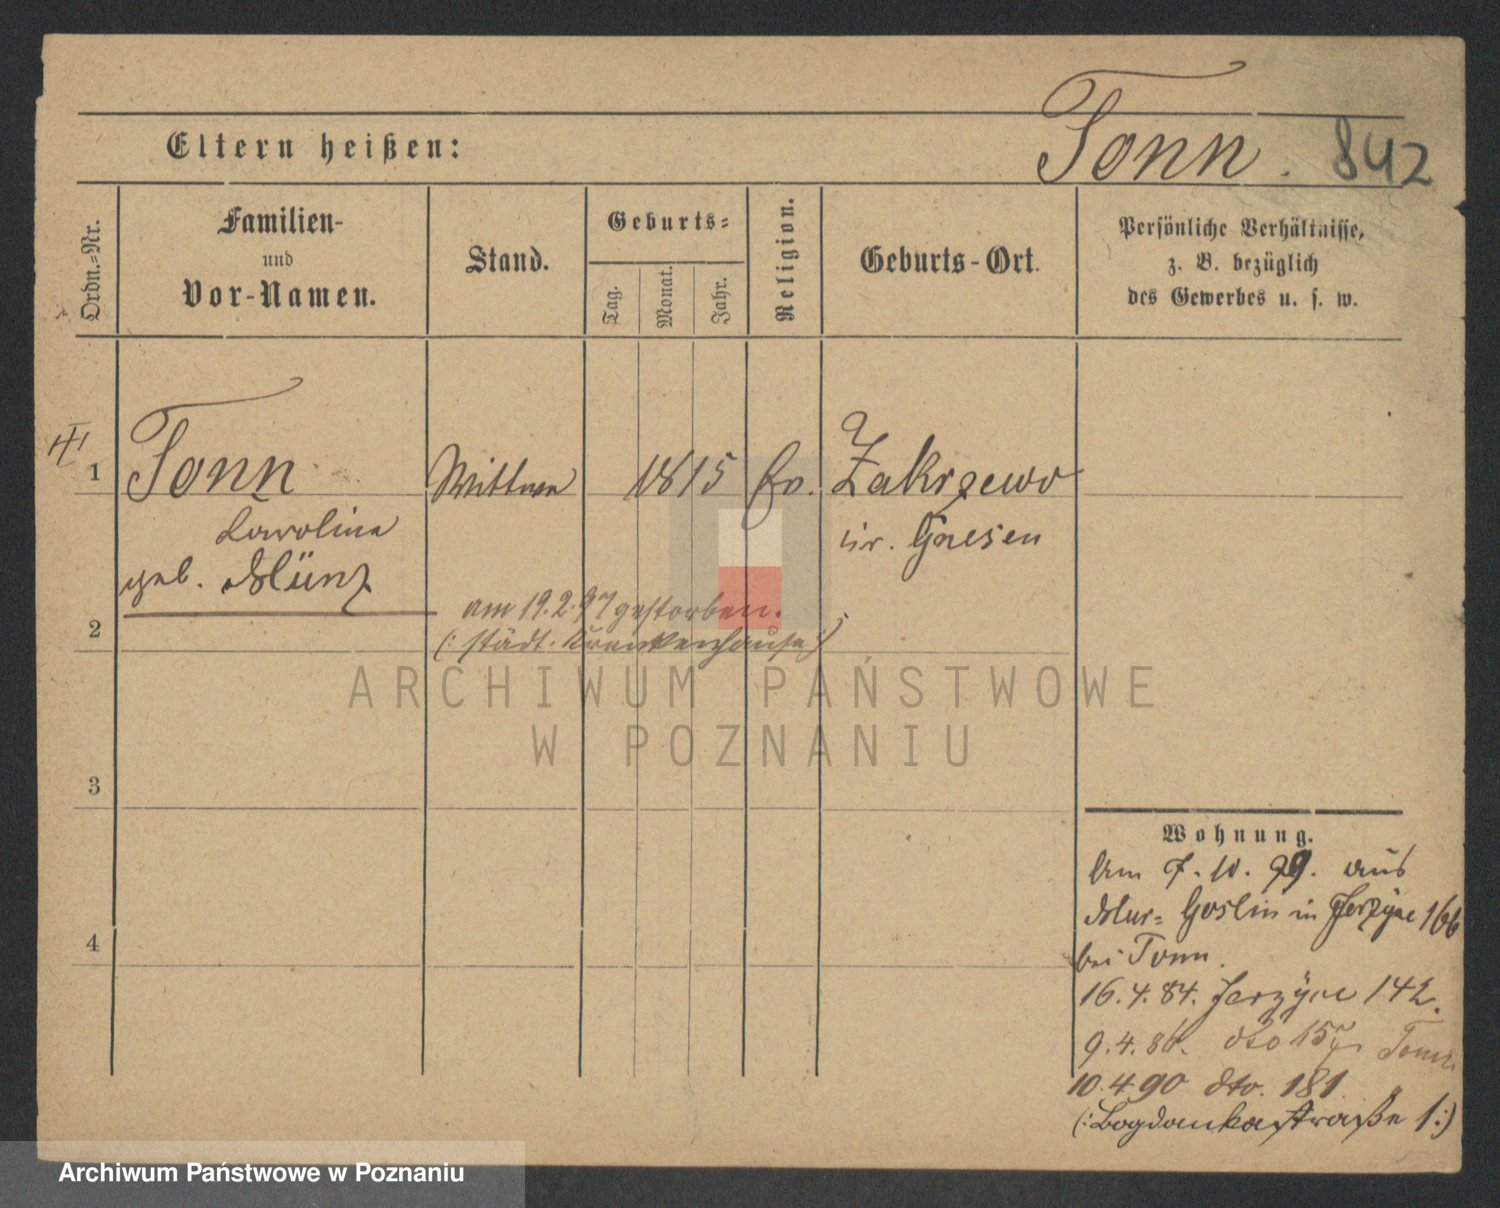 Tonn. 842
Eltern heißen:
Ordn.-Nr.
Familien-
und
Vor-Namen.
Stand.
Geburts-
Tag.
Monat.
Jahr.
Religion.
Geburts-Ort.
Persönliche Verhältnisse,
z. B. bezüglich
des Gewerbes u. s. w.
1 Tonn Wittwe 1815 Ev. Zakrzewo
Karoline Kr. Gnesen
geb. Münz
am 19.2.97 gestorben.
2
(: städt. Krankenhause :)
ARCHIWUM PAŃSTWOWE
W POZNANIU
3
4
Wohnung.
Am 7. 10. aus
Mur= Goslin in Jerzyce 166
bei Tonn.
16.4.84. Jerzyce 142.
9.4.86. dto Tonn
10.4.90 dto. 181
(: Bogdankastraße 1 :)
Archiwum Państwowe w Poznaniu